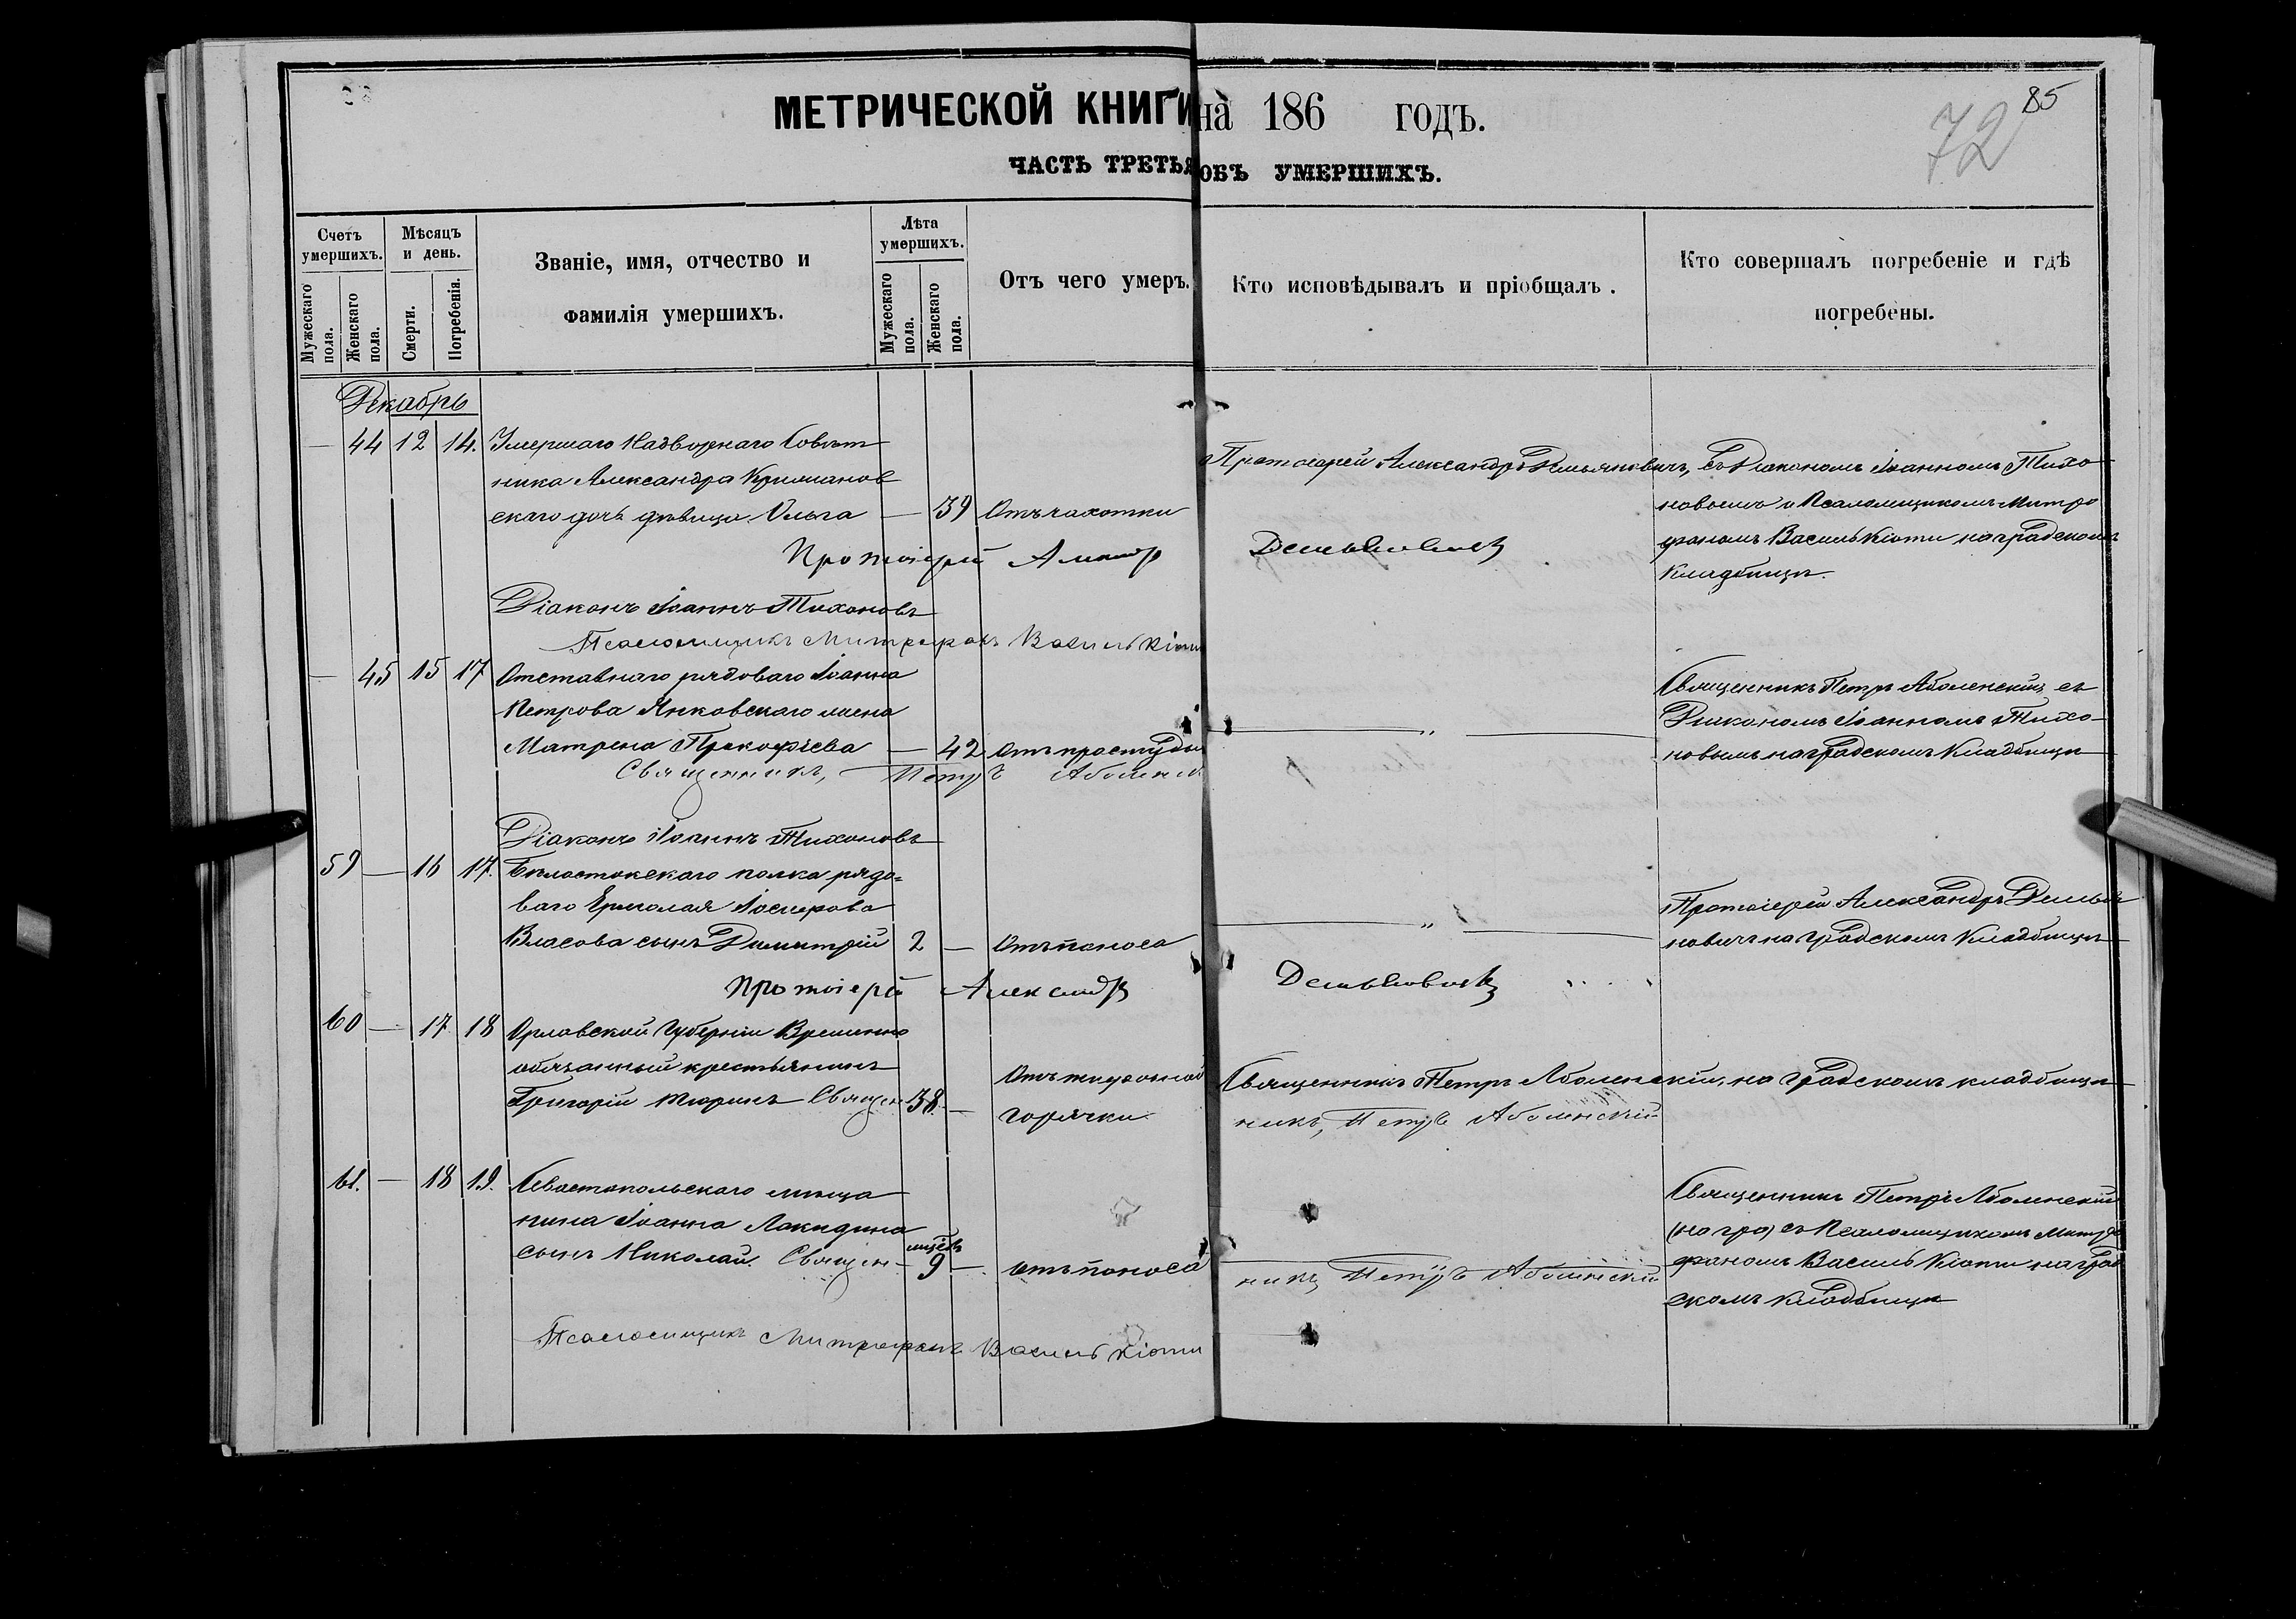 85
72
МЕТРИЧЕСКОЙ КНИГИ на 186 ГОДЪ.
ЧАСТЬ ТРЕТЬЯ ОБЪ УМЕРШИХЪ.
Счетъ умершихъ.
Мужескаго пола.
Женскаго пола.
Мѣсяцъ и день.
Смерти.
Погребенія.
Званіе, имя, отчество и
фамилія умершихъ.
Лѣта умершихъ.
Мужескаго пола.
Женскаго пола.
Отъ чего умеръ.
Кто исповѣдывалъ и пріобщалъ.
Кто совершалъ погребеніе и гдѣ
погребены.
Декабрь
— 44 12 14. Умершаго Надворнаго Совѣт
ника Александра Крижанов
скаго дочь дѣвица Ольга — 39 Отъ чахотки
Протоіерей Александръ Демьяновичъ, съ Діакономъ Іоанномъ Тихо
новымъ и Псаломщикомъ Митро
фаномъ Василькіоти, на градскомъ
кладбищѣ.
Протоіерей Алекандр Демьяновичъ
Діаконъ Іоаннъ Тихоновъ
Псаломщикъ Митрофанъ Василькіоти
— 45 15 17 Отставнаго рядоваго Іоанна
Петрова Янковскаго жена
Матрена Прокофіева — 42 Отъ простуды
— „ —
Священникъ Петръ Аболенскій съ
Діакономъ Іоанномъ Тихо-
новымъ на градскомъ кладбищѣ
Священникъ, Петръ Аболенск
Діаконъ Іоаннъ Тихоновъ
59 — 16 17. Бѣлостокскаго полка рядо=
ваго Ермолая Іосифова
Власова сынъ Димитрій 2 — Отъ поноса
— „ —
Протоіерей Александръ Демья
новичъ на градскомъ кладбищѣ
Протоіерей Александръ Демьяновичъ
60 — 17 18 Орловской Губерніи Временно
обязанный крестьянинъ
Григорій Тюринъ 38. — Отъ тифозной
горячки
Священникъ Петръ Аболенскій, на градскомъ кладбищѣ
Священникъ, Петръ Аболенскій
61. — 18 19. Севастопольскаго мѣща
нина Іоанна Лакидина
сынъ Николай. 9 — отъ поноса
Священникъ Петръ Аболенскій
(на гра) съ Псаломщикомъ Митро
фаномъ Василькіоти на град
скомъ кладбищѣ
Священникъ Петръ Аболенскій
Псаломщикъ Митрофанъ Василькіоти